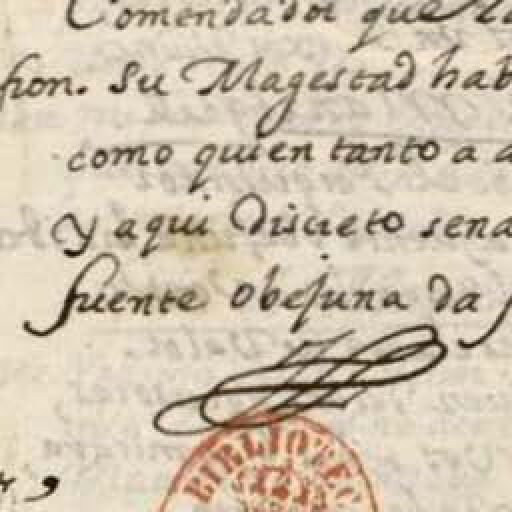 Comendador que
fion. Su Magestad hab
como quien tanto a a
y aqui Discreto sena
fuente obejuna da f
BIBLIOTEC